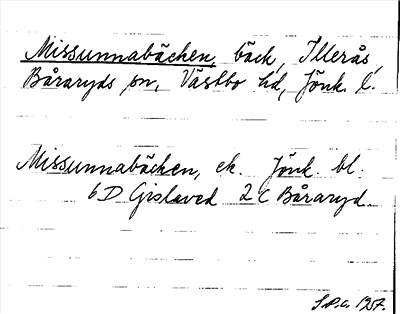 Missunnabäcken, bäck, Illerås,
Båraryds sn, Västbo hd, Jönk. l.
Missunnabäcken, ek. Jönk. bl.
6D Gislaved 2c Båraryd.
1957.